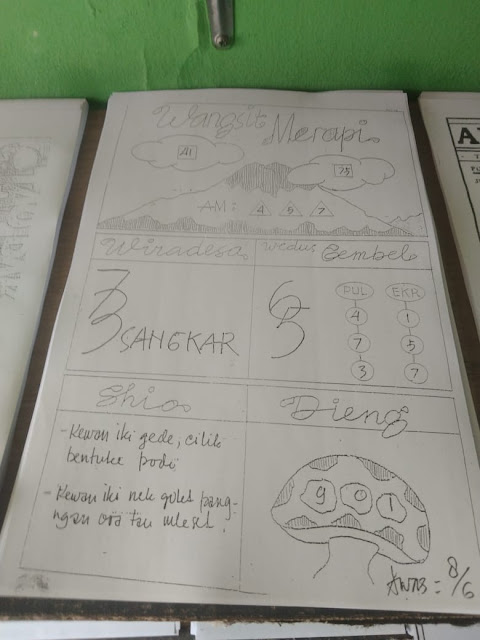 Wangsit Merapi
41
75
AM: 4 5 7
Wiradesa
Wedus Gembel
73
SANGKAR
65
PUL EKR
4 1
7 5
3 7
Shio
Dieng
- Kewan iki gede, cilik
bentuke podo
- Kewan iki nek golek pang-
ngan ora tau
9 0 1
= 8/6
A